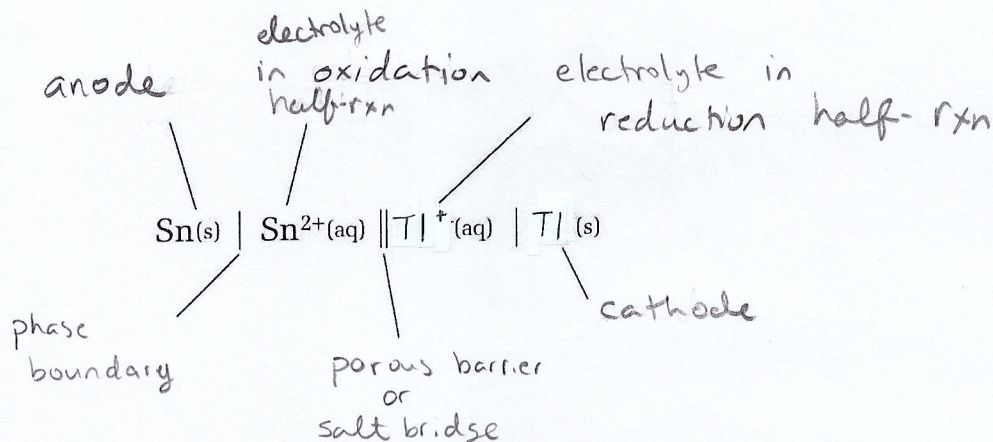 anode
electrolyte
in oxidation
half-rxn
electrolyte in
reduction half-rxn
Sn(s) | Sn²⁺(aq) || Tl⁺(aq) | Tl (s)
phase
boundary
porous barrier
or
salt bridge
cathode